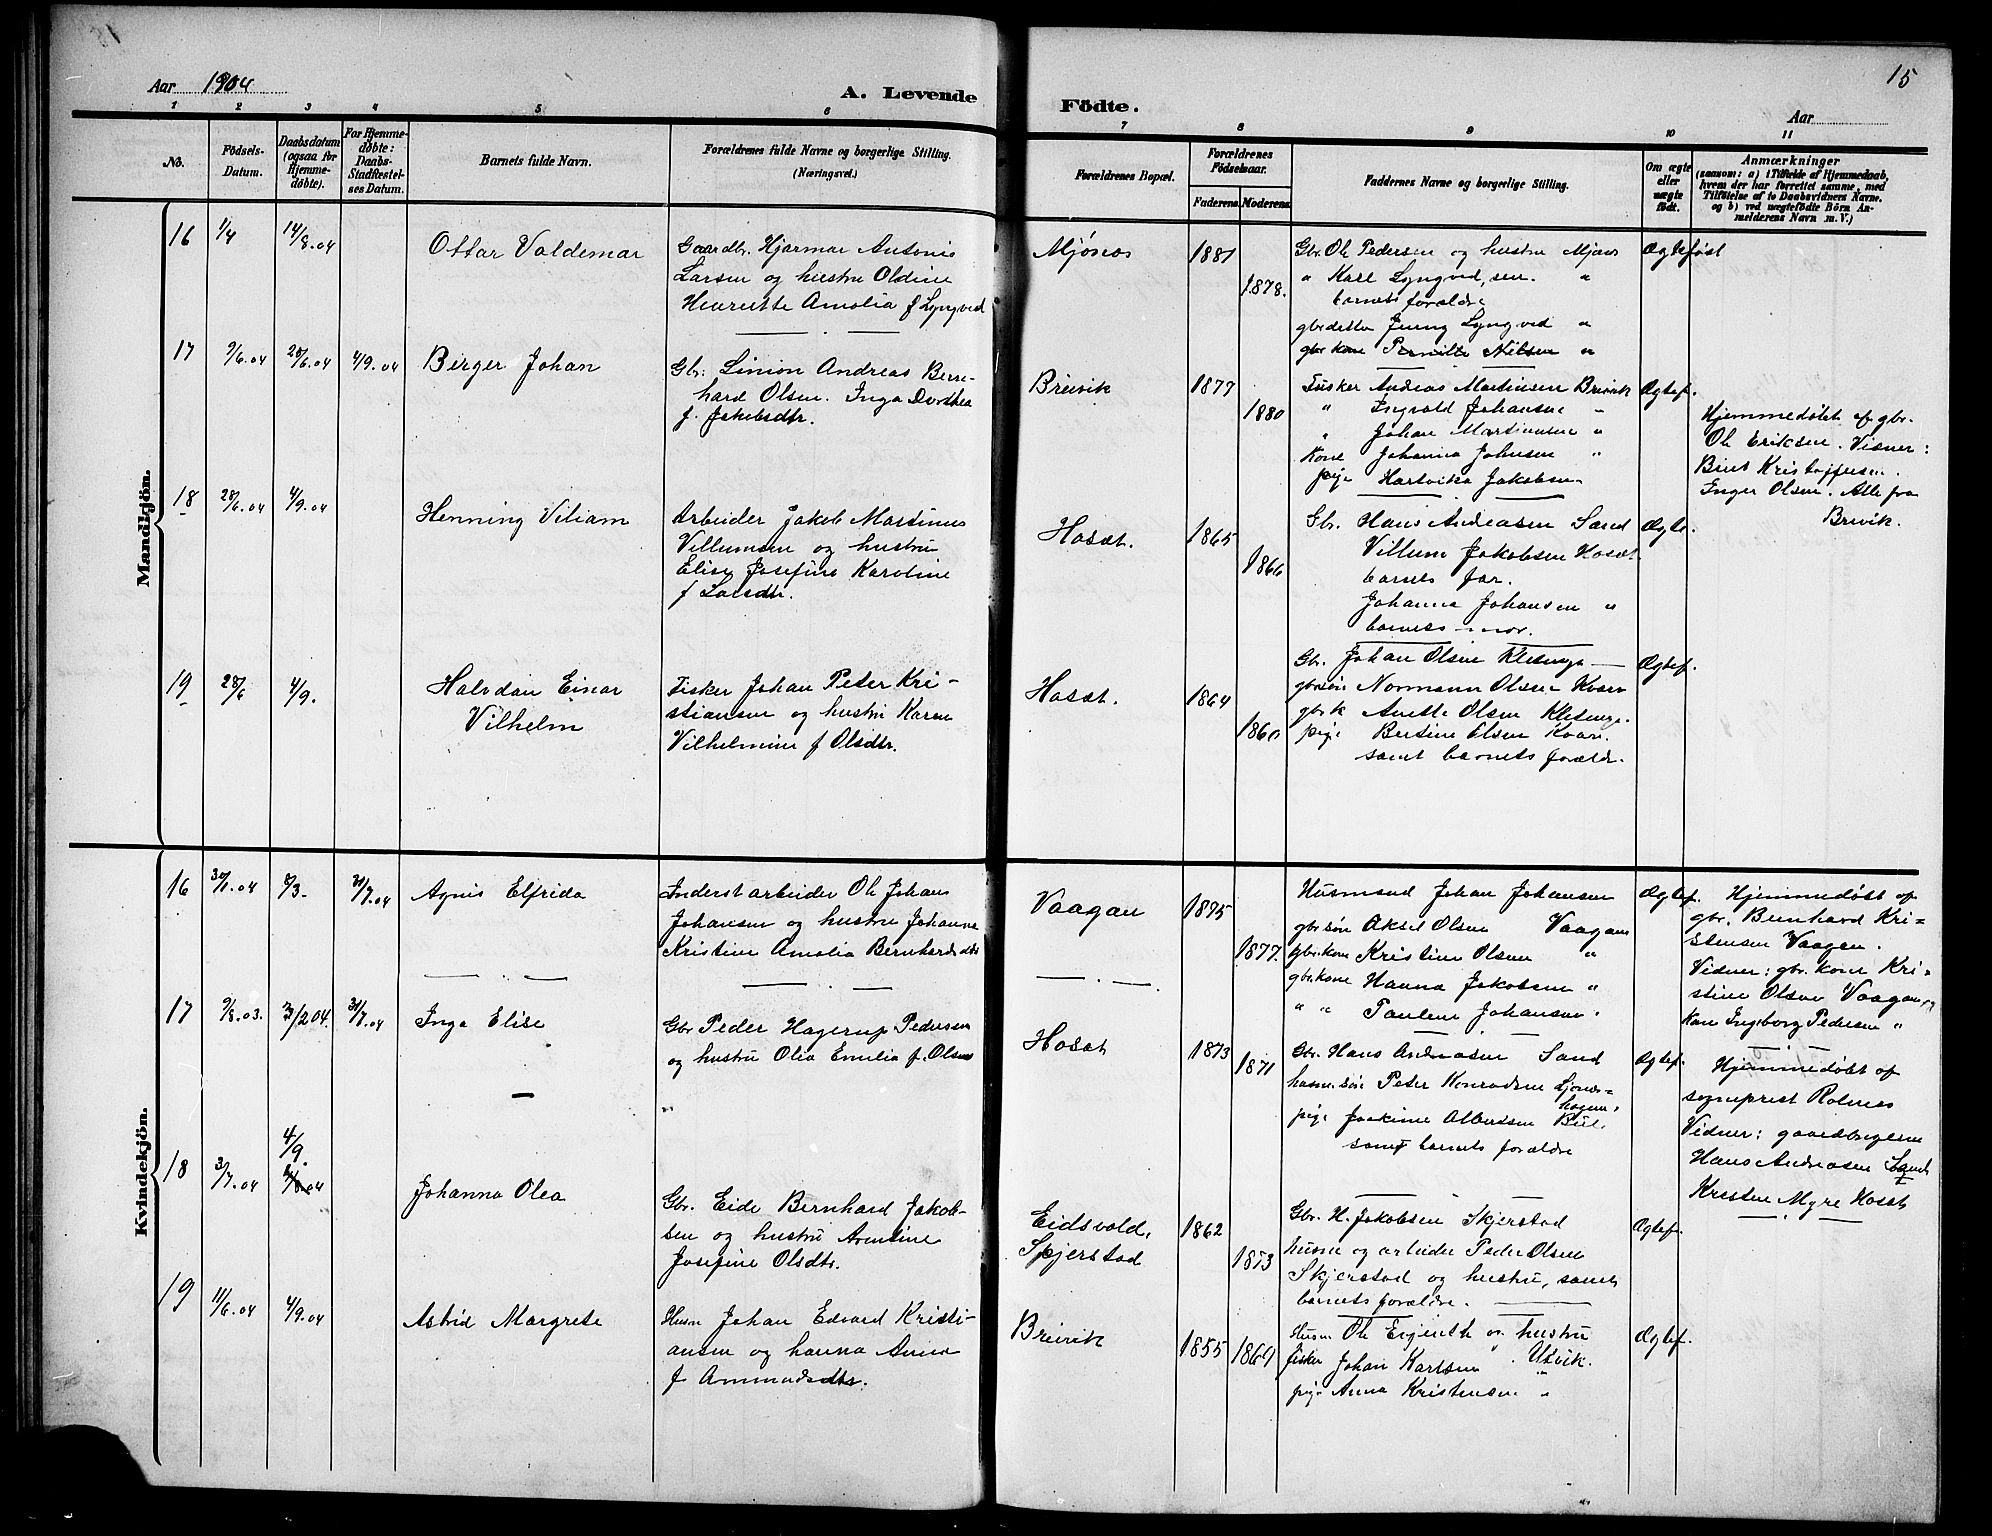 15
Aar 1904
A. Levende
Födte.
Aar
1 2 3 4 5 6 7 8 9 10 11
No.
Födsels-
Datum.
Daabsdatum
(ogsaa for
Hjemme-
döbte).
For Hjemme-
döbte:
Daabs-
Stadfæstel-
ses Datum.
Barnets fulde Navn.
Forældrenes fulde Navne og borgerlige Stilling.
(Næringsvei.)
Forældrenes Bopæl.
Forældrenes
Födselsaar.
Faderens. Moderens.
Faddernes Navne og borgerlige Stilling.
Om ægte
eller
uægte
födt.
Anmærkninger
(saasom: a) i Tilfælde af Hjemmedaab,
hvem der har forrettet samme, med
Tilföielse af to Daabsvidners Navne.
og b) ved uægtefödte Börn An-
melderens Navn m. V.)
Mandkjön.
16
1/4
14/8.04
Ottar Valdemar
Gaardbr. Hjarmar Antonis
Larsen og hustru Oldine
Henriette Amalia f Lyngved
Mjónes
1881
1878.
Gbr. Ole Pedersen og hustru Mjønes
" Karl Lyngved, sen. "
barnets forældre
gbr.datter Jenny Lyngved "
gbr kone Pernille Nilsen "
Ægtefødt
17
9/6.04
26/6.04
4/9.04
Birger Johan
Gbr. Simon Andreas Bern-
hard Olsen. Inga Dorthea
f. Jakobsdtr.
Breivik
1877
1880
Fisker Andreas Martinsen Breivik
" Ingvald Johansen "
" Johan Martinusen "
Kone Johanna Johnsen "
pige Hartvika Jakobsen
Ægtef.
Hjemmedøbt af gbr.
Ole Eriksen. Vidner:
Berit Kristoffersen.
Inger Olsen. Alle fra
Breivik.
18
28/6.04
4/9.04
Henning Viliam
Arbeider Jakob Martinus
Villumsen og hustru
Elise Josefine Karoline
f Larsdtr.
Hosæt.
1865
1866
Gbr. Hans Andreasen Sand
Villum Jakobsen Hosæt
barnets far.
Johanna Johansen "
barnets mor.
Ægte.
19
28/6
4/9.
Halvdan Einar
Vilhelm
Fisker Johan Peter Kri-
stiansen og hustru Karen
Vilhelmine f Olsdtr.
Hosæt.
1864
1860
Gbr. Johan Olsen Kletunga
gbr.søn Normann Olsen Kvarv
gbr.k Anette Olsen Kletunga.
pige Bertine Olsen Kvarv.
samt barnets forældr.
Ægtef.
Kvindekjön.
16
30/1.04
6/3.
31/7.04
Agnes Elfrida
Inderst arbeider Ole Johans
Johansen og hustru Johanna
Kristine Amalia Bernhardsdtr
Vaagan
1875
1877.
Husmand Johan Johansen
gbr.søn Aksel Olsen Vaagan
gbr.kone Kristine Olsen "
gbr.kone Hanna Jakobsen "
" " Pauline Johansen.
Ægtef.
Hjemmedøbt af
gbr. Bernhard Kri-
stensen Vaagan.
Vidner: gbr. kone Kri-
stine Olsen Vaagan, og
Kone Ingeborg Pedersen "
17
9/8.03.
7/2 04.
31/7.04
Inga Elise
Gbr. Peder Hagerup Pedersen
og hustru Olea Emilia f. Olsen
Hosæt
1873
1871
Gbr. Hans Andreasen Sand
husm.søn Peter Konradsen Ljones-
hagen,
pige Joakime Albertsen Bül.
samt barnets forældre
Ægtef.
Hjemmedøbt af
sogneprest Rolmes
Vidner: gaardbrugerne
Hans Andreasen Sand
Kristen Myre Hosæt
18
3/7.04
4/9.
Johanna Olea
Gbr. Eide Bernhard Jakob-
sen og hustru Arentine
Josefine Olsdtr.
Eidsvold,
Skjerstad
1862
1873
Gbr. H. Jakobsen Skjerstad
husm og arbeider Peder Olsen
Skjerstad og hustru, samt
barnets forældre.
Ægtef.
19
11/6.04
4/9.04
Astrid Margrete
Husm Johan Edvard Kristi-
ansen og hanna Anna
f Ammundsdtr.
Breivik
1855
1869
Husm Ole og hustru
fisker Johan Karlsen " Utvik.
pige Anna Kristensen "
Ægtef.